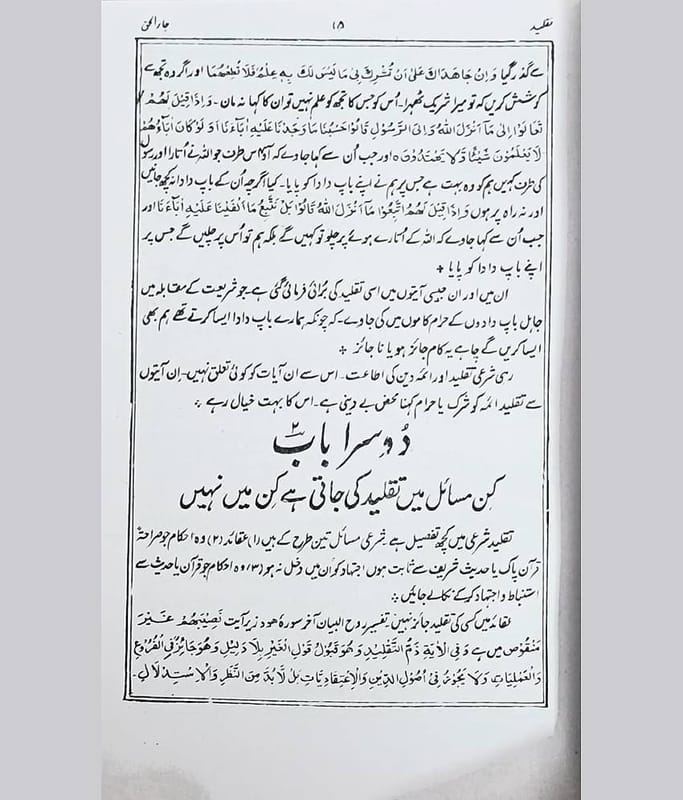 تقلید ۱۵ جاء الحق
سے گذر گیا وَاِنْ جَاهَدَاكَ عَلٰى اَنْ تُشْرِكَ بِىْ مَا لَيْسَ لَكَ بِهٖ عِلْمٌ فَلَا تُطِعْهُمَا اور اگر وہ تجھ سے
کوشش کریں کہ تو میرا شریک ٹھہرا۔ اُس کو جس کا تجھ کو علم نہیں تو ان کا کہا نہ مان۔ وَاِذَا قِيْلَ لَهُمْ
تَعَالَوْا اِلٰى مَآ اَنْزَلَ اللهُ وَاِلَى الرَّسُوْلِ قَالُوْا حَسْبُنَا مَا وَجَدْنَا عَلَيْهِ اٰبَآءَنَا اَوَ لَوْ كَانَ اٰبَاؤُهُمْ
لَا يَعْلَمُوْنَ شَيْئًا وَّلَا يَهْتَدُوْنَ ہ اور جب اُن سے کہا جاوے کہ آؤ اس طرف جو اللہ نے اُتارا اور رسول
کی طرف کہیں ہم کو وہ بہت ہے جس پر ہم نے اپنے باپ دادا کو پایا۔ کیا اگرچہ اُن کے باپ دادا نہ کچھ جانیں
اور نہ راہ پر ہوں وَاِذَا قِيْلَ لَهُمُ اتَّبِعُوْا مَآ اَنْزَلَ اللهُ قَالُوْا بَلْ نَتَّبِعُ مَا اَلْفَيْنَا عَلَيْهِ اٰبَآءَنَا اور
جب اُن سے کہا جاوے کہ اللہ کے اُتارے ہوئے پر چلو تو کہیں گے بلکہ ہم تو اُس پر چلیں گے جس پر
اپنے باپ دادا کو پایا ٭
ان میں اور ان جیسی آیتوں میں اسی تقلید کی بُرائی فرمائی گئی ہے۔ جو شریعت کے مقابلہ میں
جاہل باپ دادوں کے حرام کاموں میں کی جاوے۔ کہ چونکہ ہمارے باپ دادا ایسا کرتے تھے ہم بھی
ایسا کریں گے چاہے یہ کام جائز ہو یا نا جائز ٭
رہی شرعی تقلید اور ائمہ دین کی اطاعت۔ اس سے ان آیات کو کوئی تعلق نہیں۔ اِن آیتوں
سے تقلید ائمہ کو شرک یا حرام کہنا محض بے دینی ہے۔ اس کا بہت خیال رہے ٭
دُوسرا باب ۲
کِن مسائل میں تقلید کی جاتی ہے کِن میں نہیں
تقلید شرعی میں کچھ تفصیل ہے شرعی مسائل تین طرح کے ہیں (۱) عقائد (۲) وہ احکام جو صراحۃً
قرآن پاک یا حدیث شریف سے ثابت ہوں اجتہاد کو اُن میں دخل نہ ہو (۳) وہ احکام جو قرآن یا حدیث سے
استنباط و اجتہاد کرکے نکالے جائیں ٭
عقائد میں کسی کی تقلید جائز نہیں تفسیر روح البیان آخر سورۂ ھود زیر آیت نَصِيْبَهُمْ غَيْرَ
مَنْقُوْصٍ میں ہے وَفِى الْاٰيَةِ ذَمُّ التَّقْلِيْدِ وَهُوَ قَبُوْلُ قَوْلِ الْغَيْرِ بِلَا دَلِيْلٍ وَهُوَ جَائِزٌ فِى الْفُرُوْعِ
وَالْعَمَلِيَّاتِ وَلَا يَجُوْزُ فِىْ اُصُوْلِ الدِّيْنِ وَالْاِعْتِقَادِيَّاتِ بَلْ لَابُدَّ مِنَ النَّظَرِ وَالْاِسْتِدْلَالِ۔